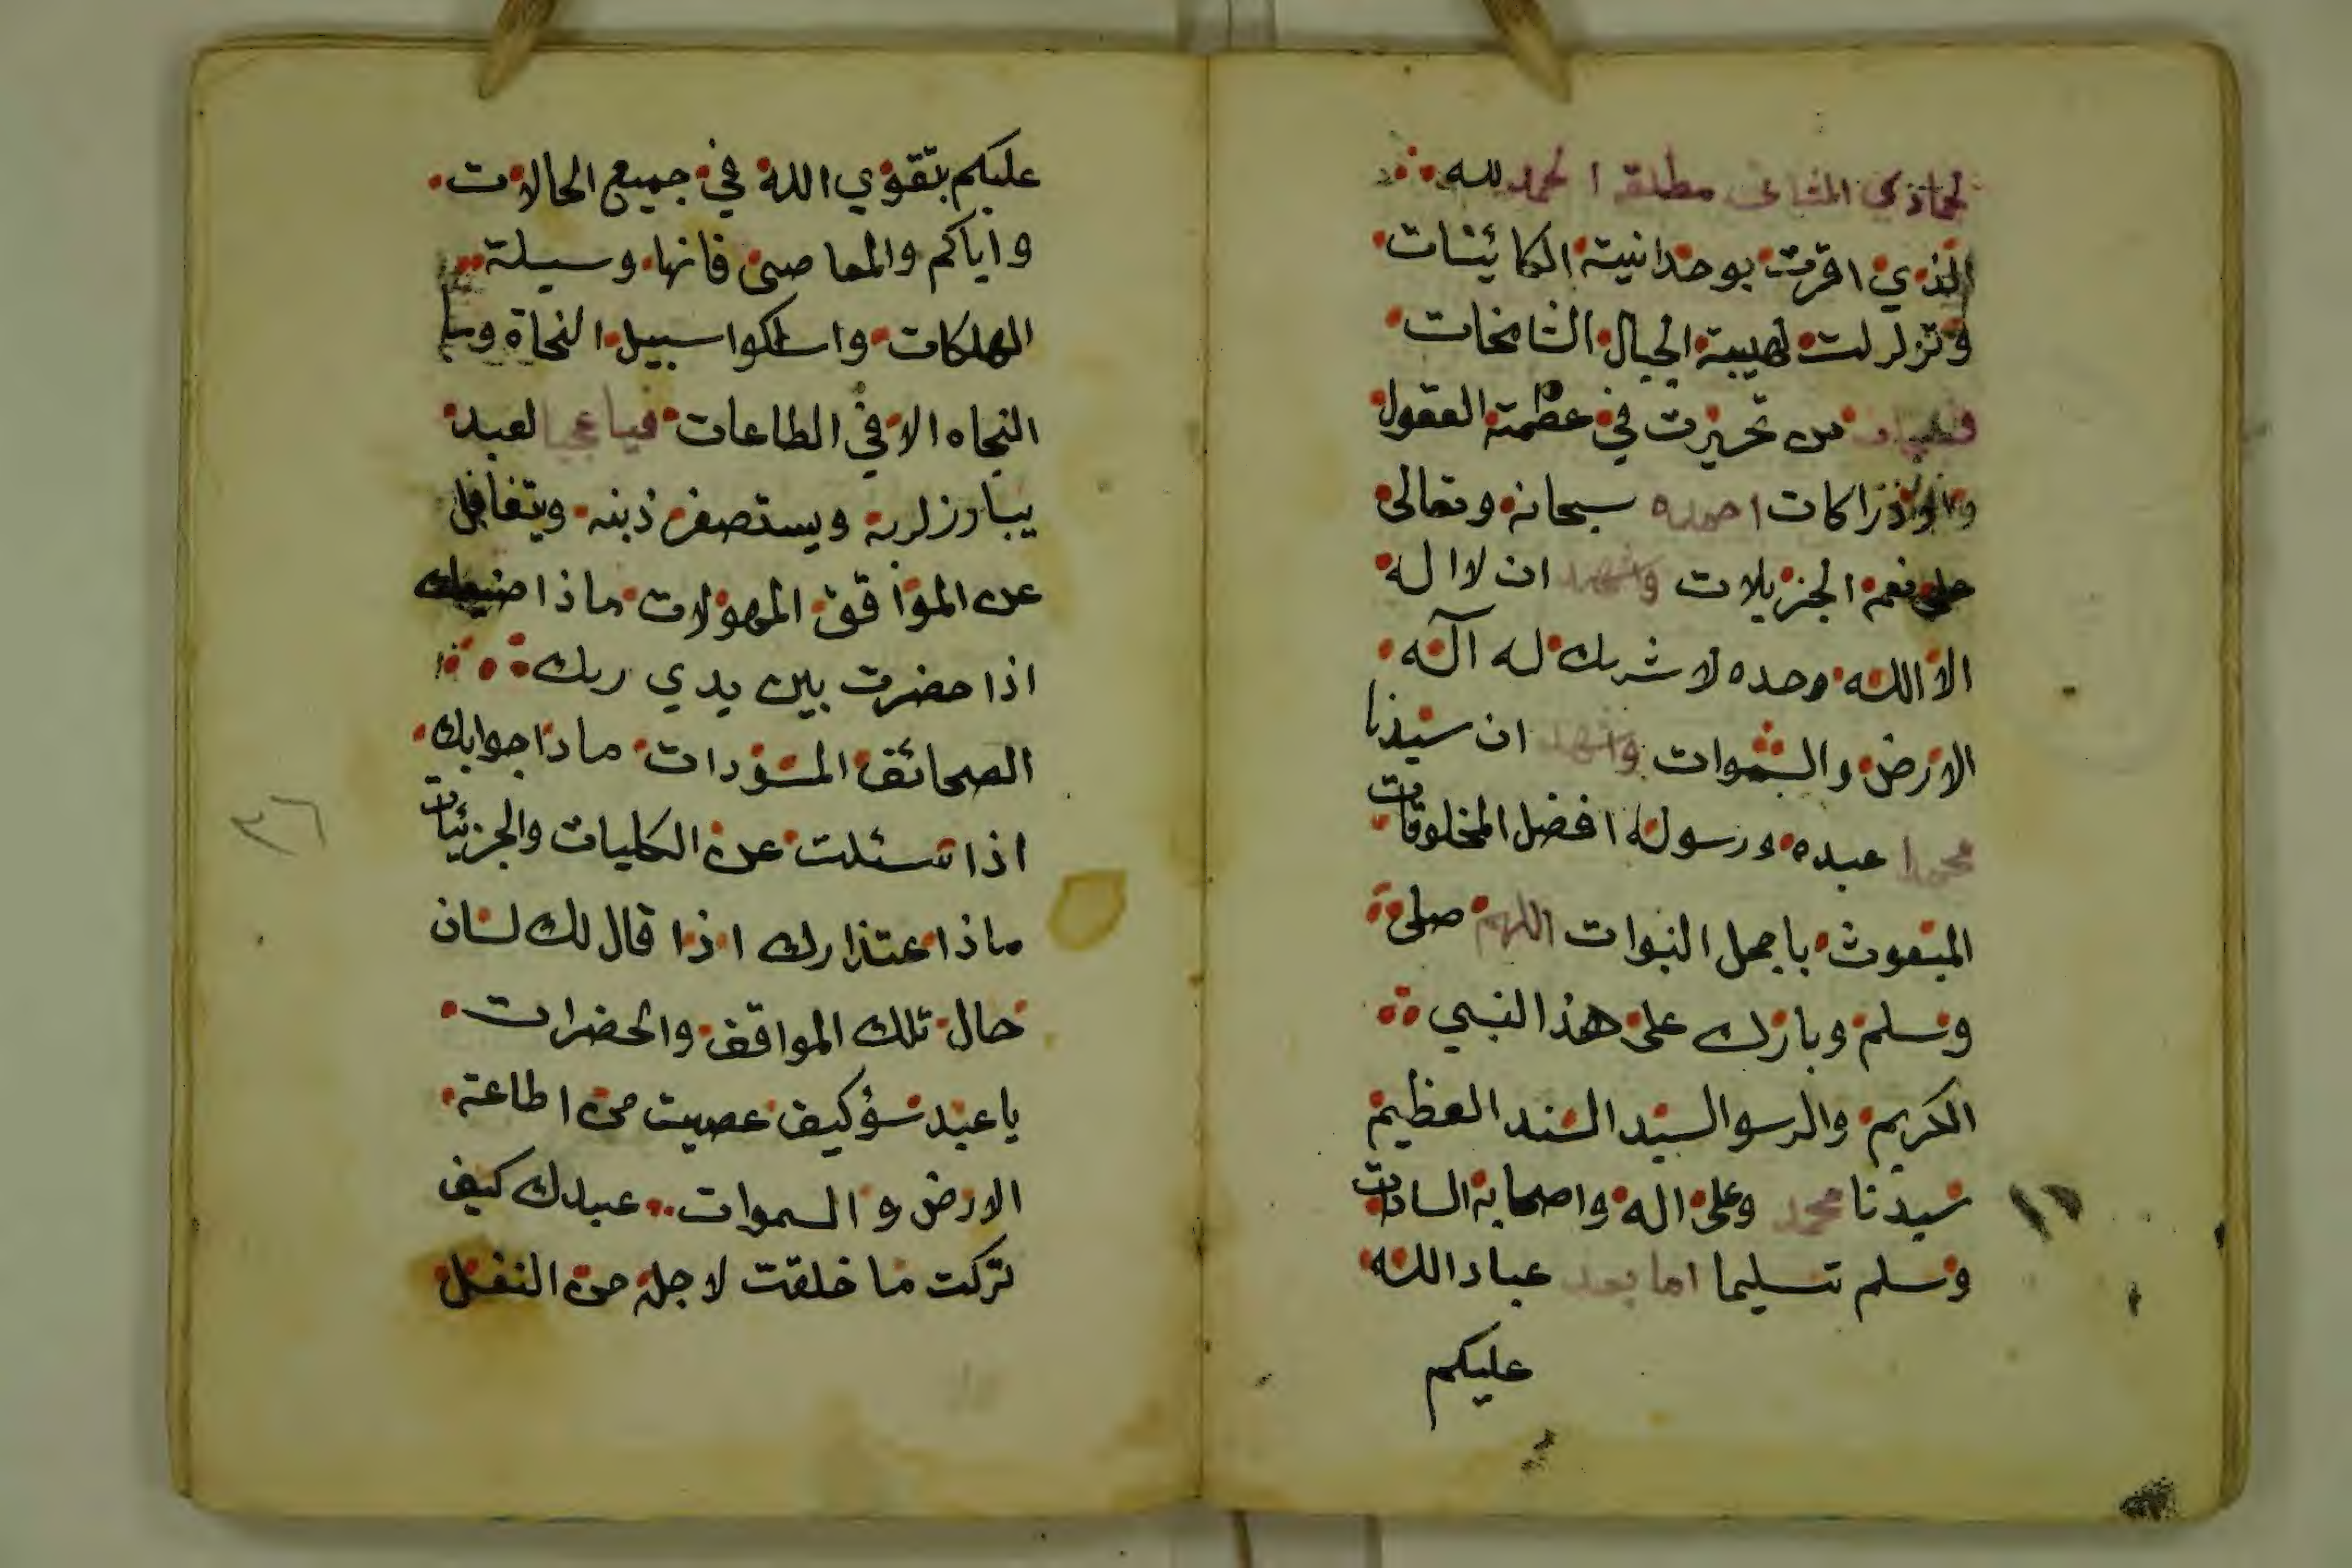 لجماذي الثاني مطلقه الحمد لله
الذي اقرت بوحدانيته الكائينات
وتزلزلت لهيبته الجبال الشامخات
من تحيرت في عظمته العقول
احمده سبحانه وتعالى
على نعمه الجزيلات واشهد ان لا اله
الا الله وحده لا شريك له آله
الارض والسموات واشهد ان سيدنا
محمدا عبده ورسوله افضل المخلوقات
المبعوث باجمل النبوات اللهم صلى
وسلم وبارك على هذا النبي
الكريم والرسو السيد السند العظيم
سيدنا محمد وعلى اله واصحابه السادات
وسلم تسليما اما بعد عباد الله
عليكم
عليكم بتقوي الله في جميع الحالات
واياكم والمعاصى فانها وسيلة
المهلكات واسلكوا سبيل النجاة وما
النجاه الا في الطاعات فيا عجبا لعبد
يبارز لربه ويستصغر ذبنه ويتغافل
عن المواقف المهولات ماذا صنيعك
اذا حضرت بين يدي ربك
الصحائف المسودات ماذا جوابك
اذا سئلت عن الكليات والجزئيات
ماذا عتذارك اذا قال لك لسان
حال تلك المواقف والحضرات
يا عبد سؤ كيف عصيت من اطاعته
الارض والسموات عبدك كيف
تركت ما خلقت لاجله من النفل
٣٦